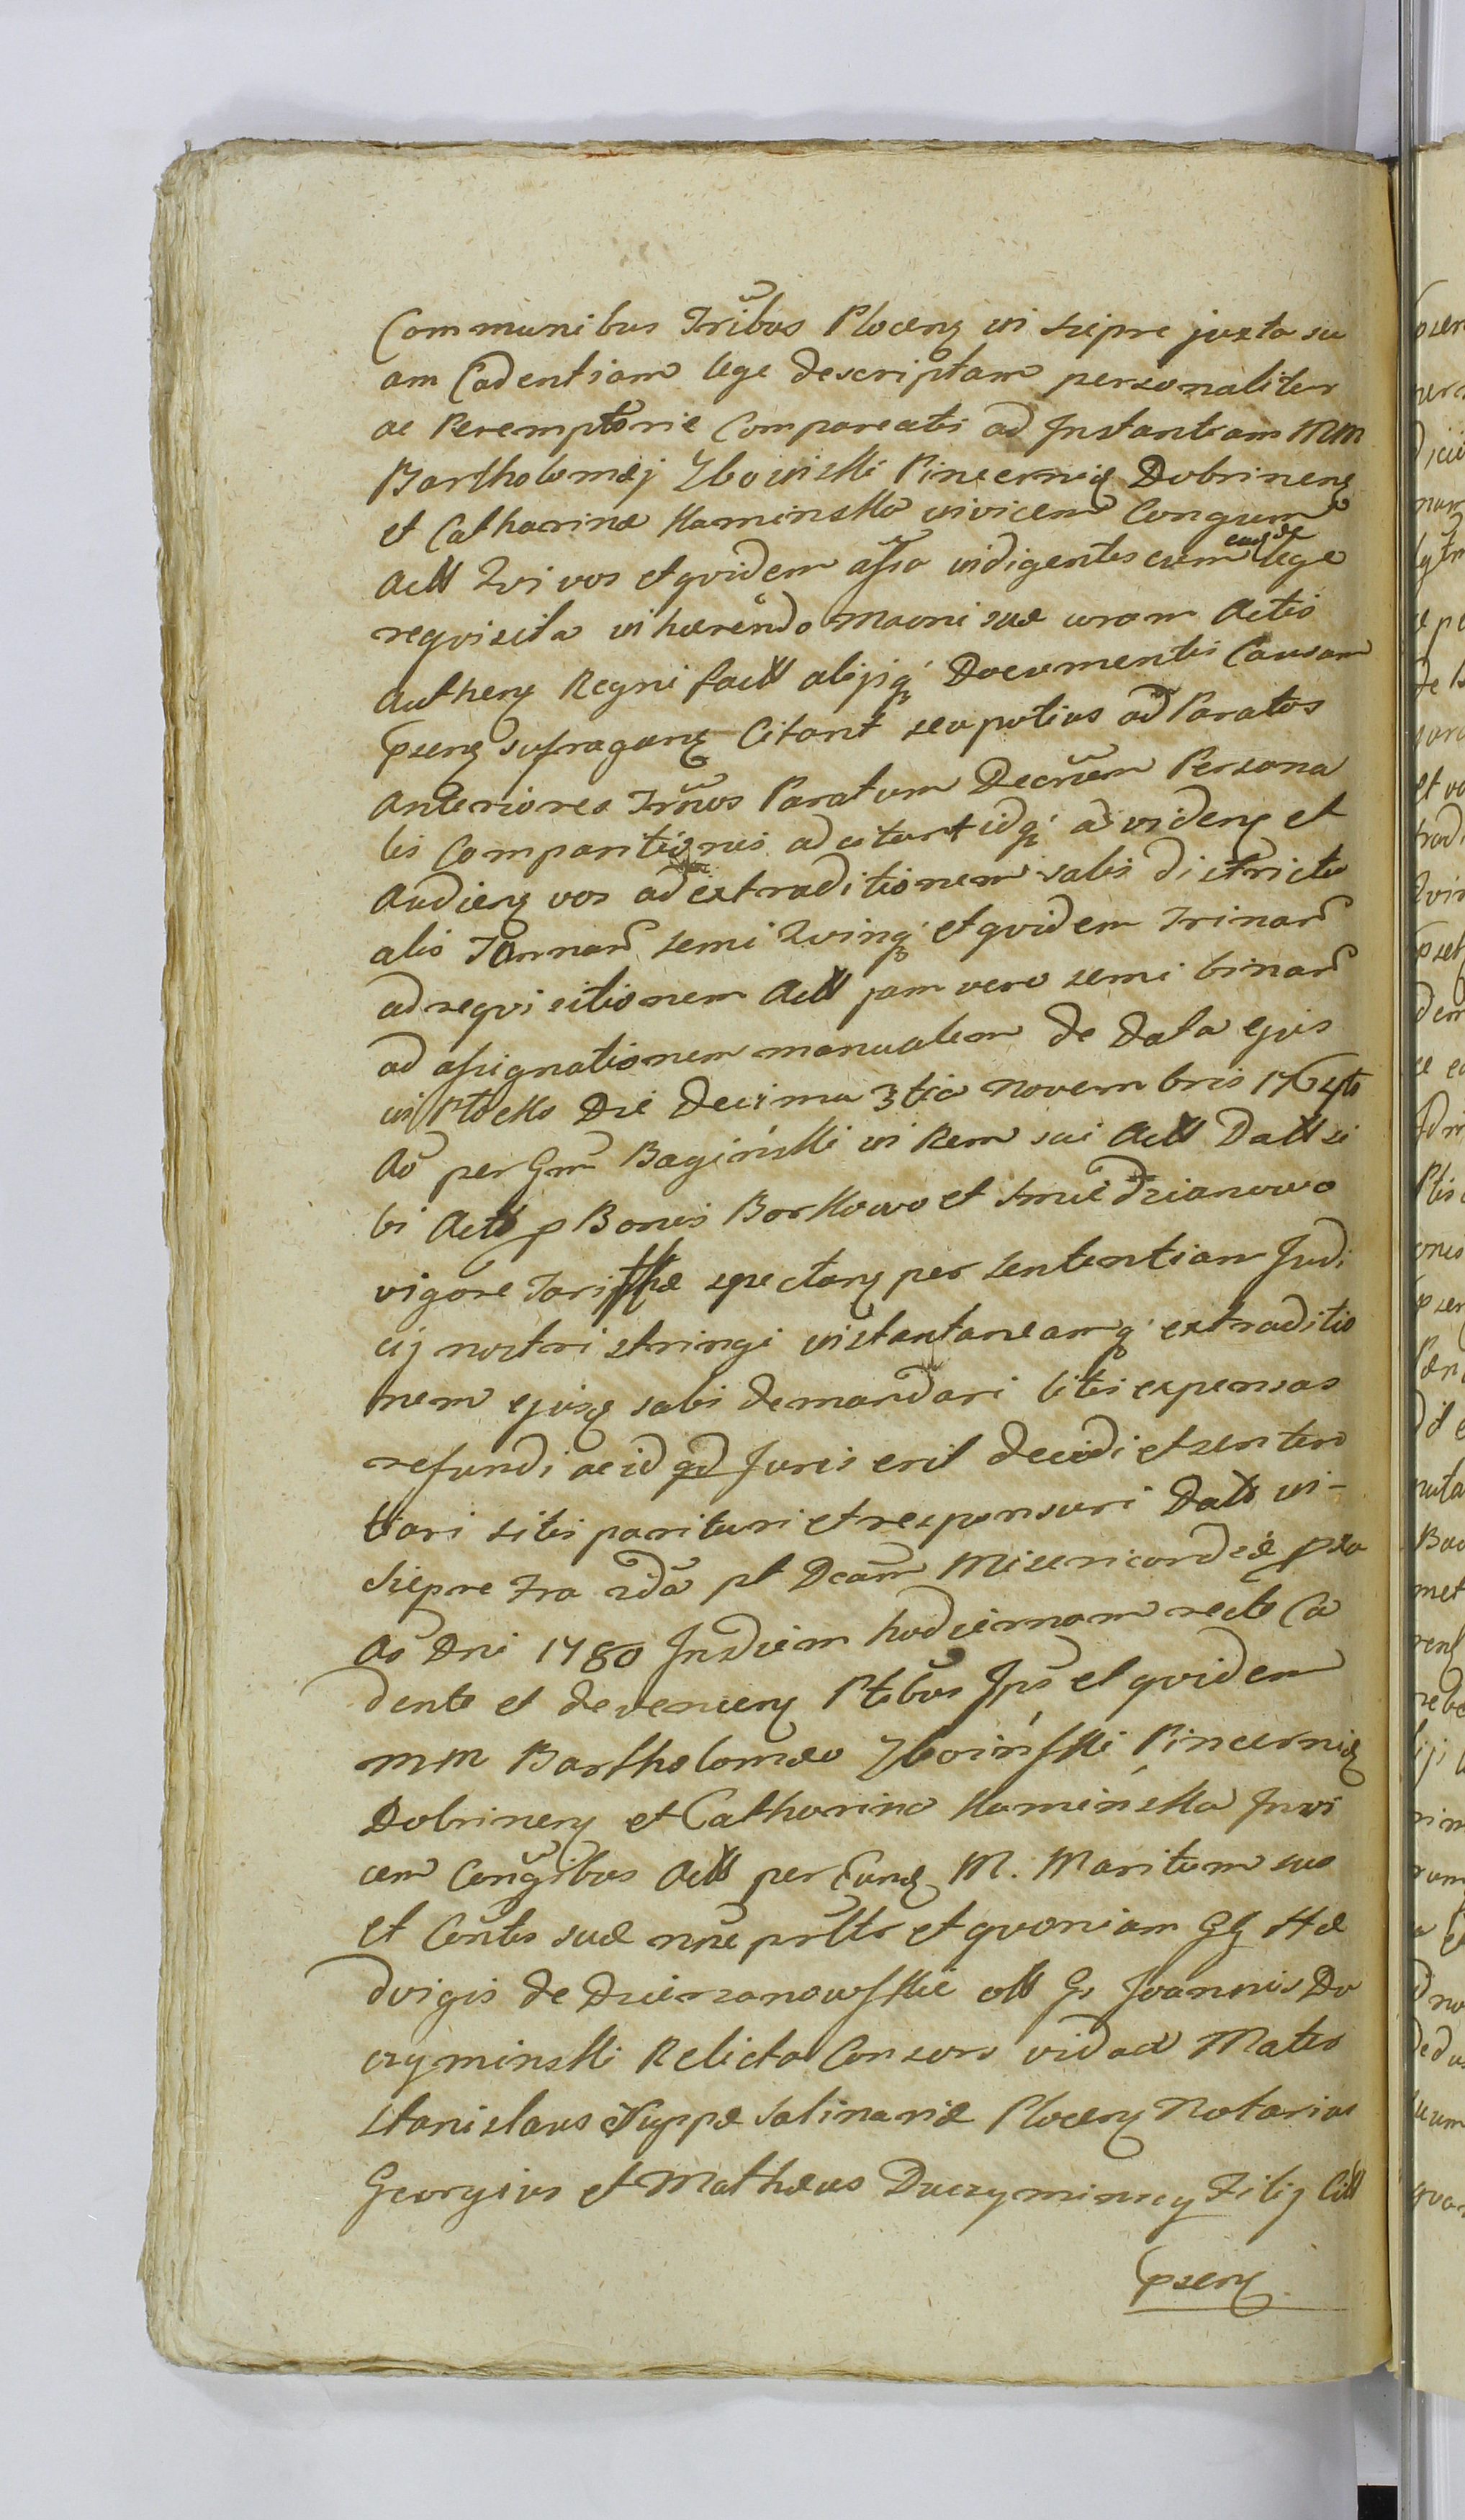 Communibus Trībus Plocen in Siepre juxta su
am Cadentiam lege descriptam personaliter
ac Peremptorie Compareatis ad Instantiam MM
Bartholomæj Zboinski Pincernię Dobrinen
et Catharinæ Kaminska invicem Congum
Actt Qui vos et quidem indigentes eum eadē lege
requisita inhærendo Maoni suæ coram Actis
Authen Regni factt alijsq Documentis Causam
psen sufragan Citant seu potius ad Paratos
Anteriores Trīnos Paratum Decrum Persona
lis Comparitionis adcitant idq ad viden et
Audien vos ad extraditionem salis districtu
alis Tonnar semi Quinq et quidem Trinar
ad requisitionem Actt jam vero semi binar
ad assignationem manualem de data ejus
in Płocko Die decima 3tia Novembris
Aō per Gm Baginski in Rem sui Actt Datt si
bi Actt p Bonis Borkowo et Smiedzianowo
vigore Tariffæ spectan per sententiam Judi
cij nostri stringi instantaneamq extraditio
nem ejusq salis demandari litis expensas
refundi ac id qd Juris erit decidi et senten
tiari sitis parituri et responsuri Datt in-
Siepre Fra 2da pt Dcam Misericordiæ pxa
Aō Dni 1780 In diem hodiernam recte Ca
dente et devenien Ptibus Ips et quidem
MM Bartholomæo Zboinski Pincernię
Dobrinen et Catharina Kaminska Invi
cem Congibus Actt per Eund M. Maritum suo
et Contis suæ nne prltr et quoniam GG Hæ
dvigis de Dzierzanowskie ott G. Joannis Du
czyminski Relicta Consors vidua Mater
Stanislaus Zuppæ Salinariæ Plocen Notarius
Georgius et Mathæus Duczyminscy Filij Citt
psen